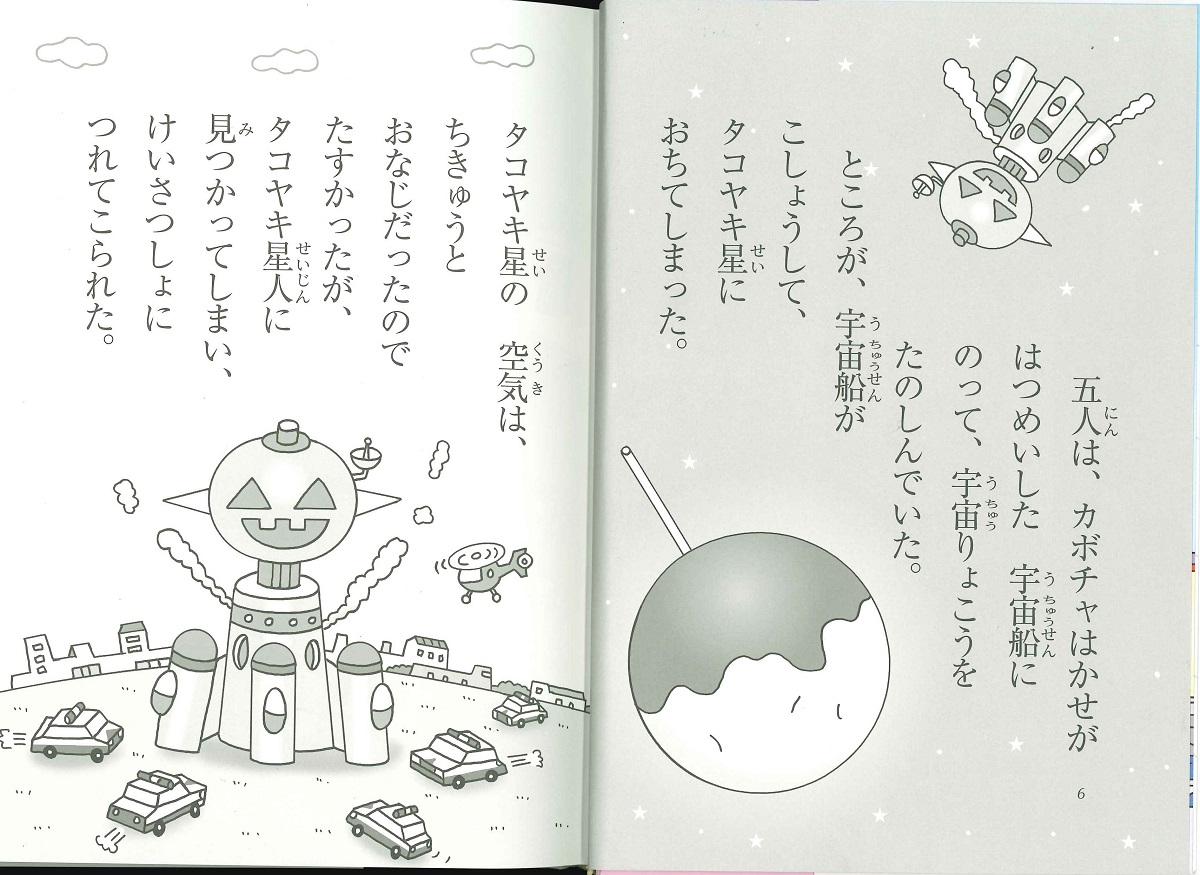 五人は、カボチャはかせが
はつめいした　宇宙船に
のって、宇宙りょこうを
たのしんでいた。
ところが、宇宙船が
こしょうして、
タコヤキ星に
おちてしまった。
6
タコヤキ星の　空気は、
ちきゅうと
おなじだったので
たすかったが、
タコヤキ星人に
見つかってしまい、
けいさつしょに
つれてこられた。